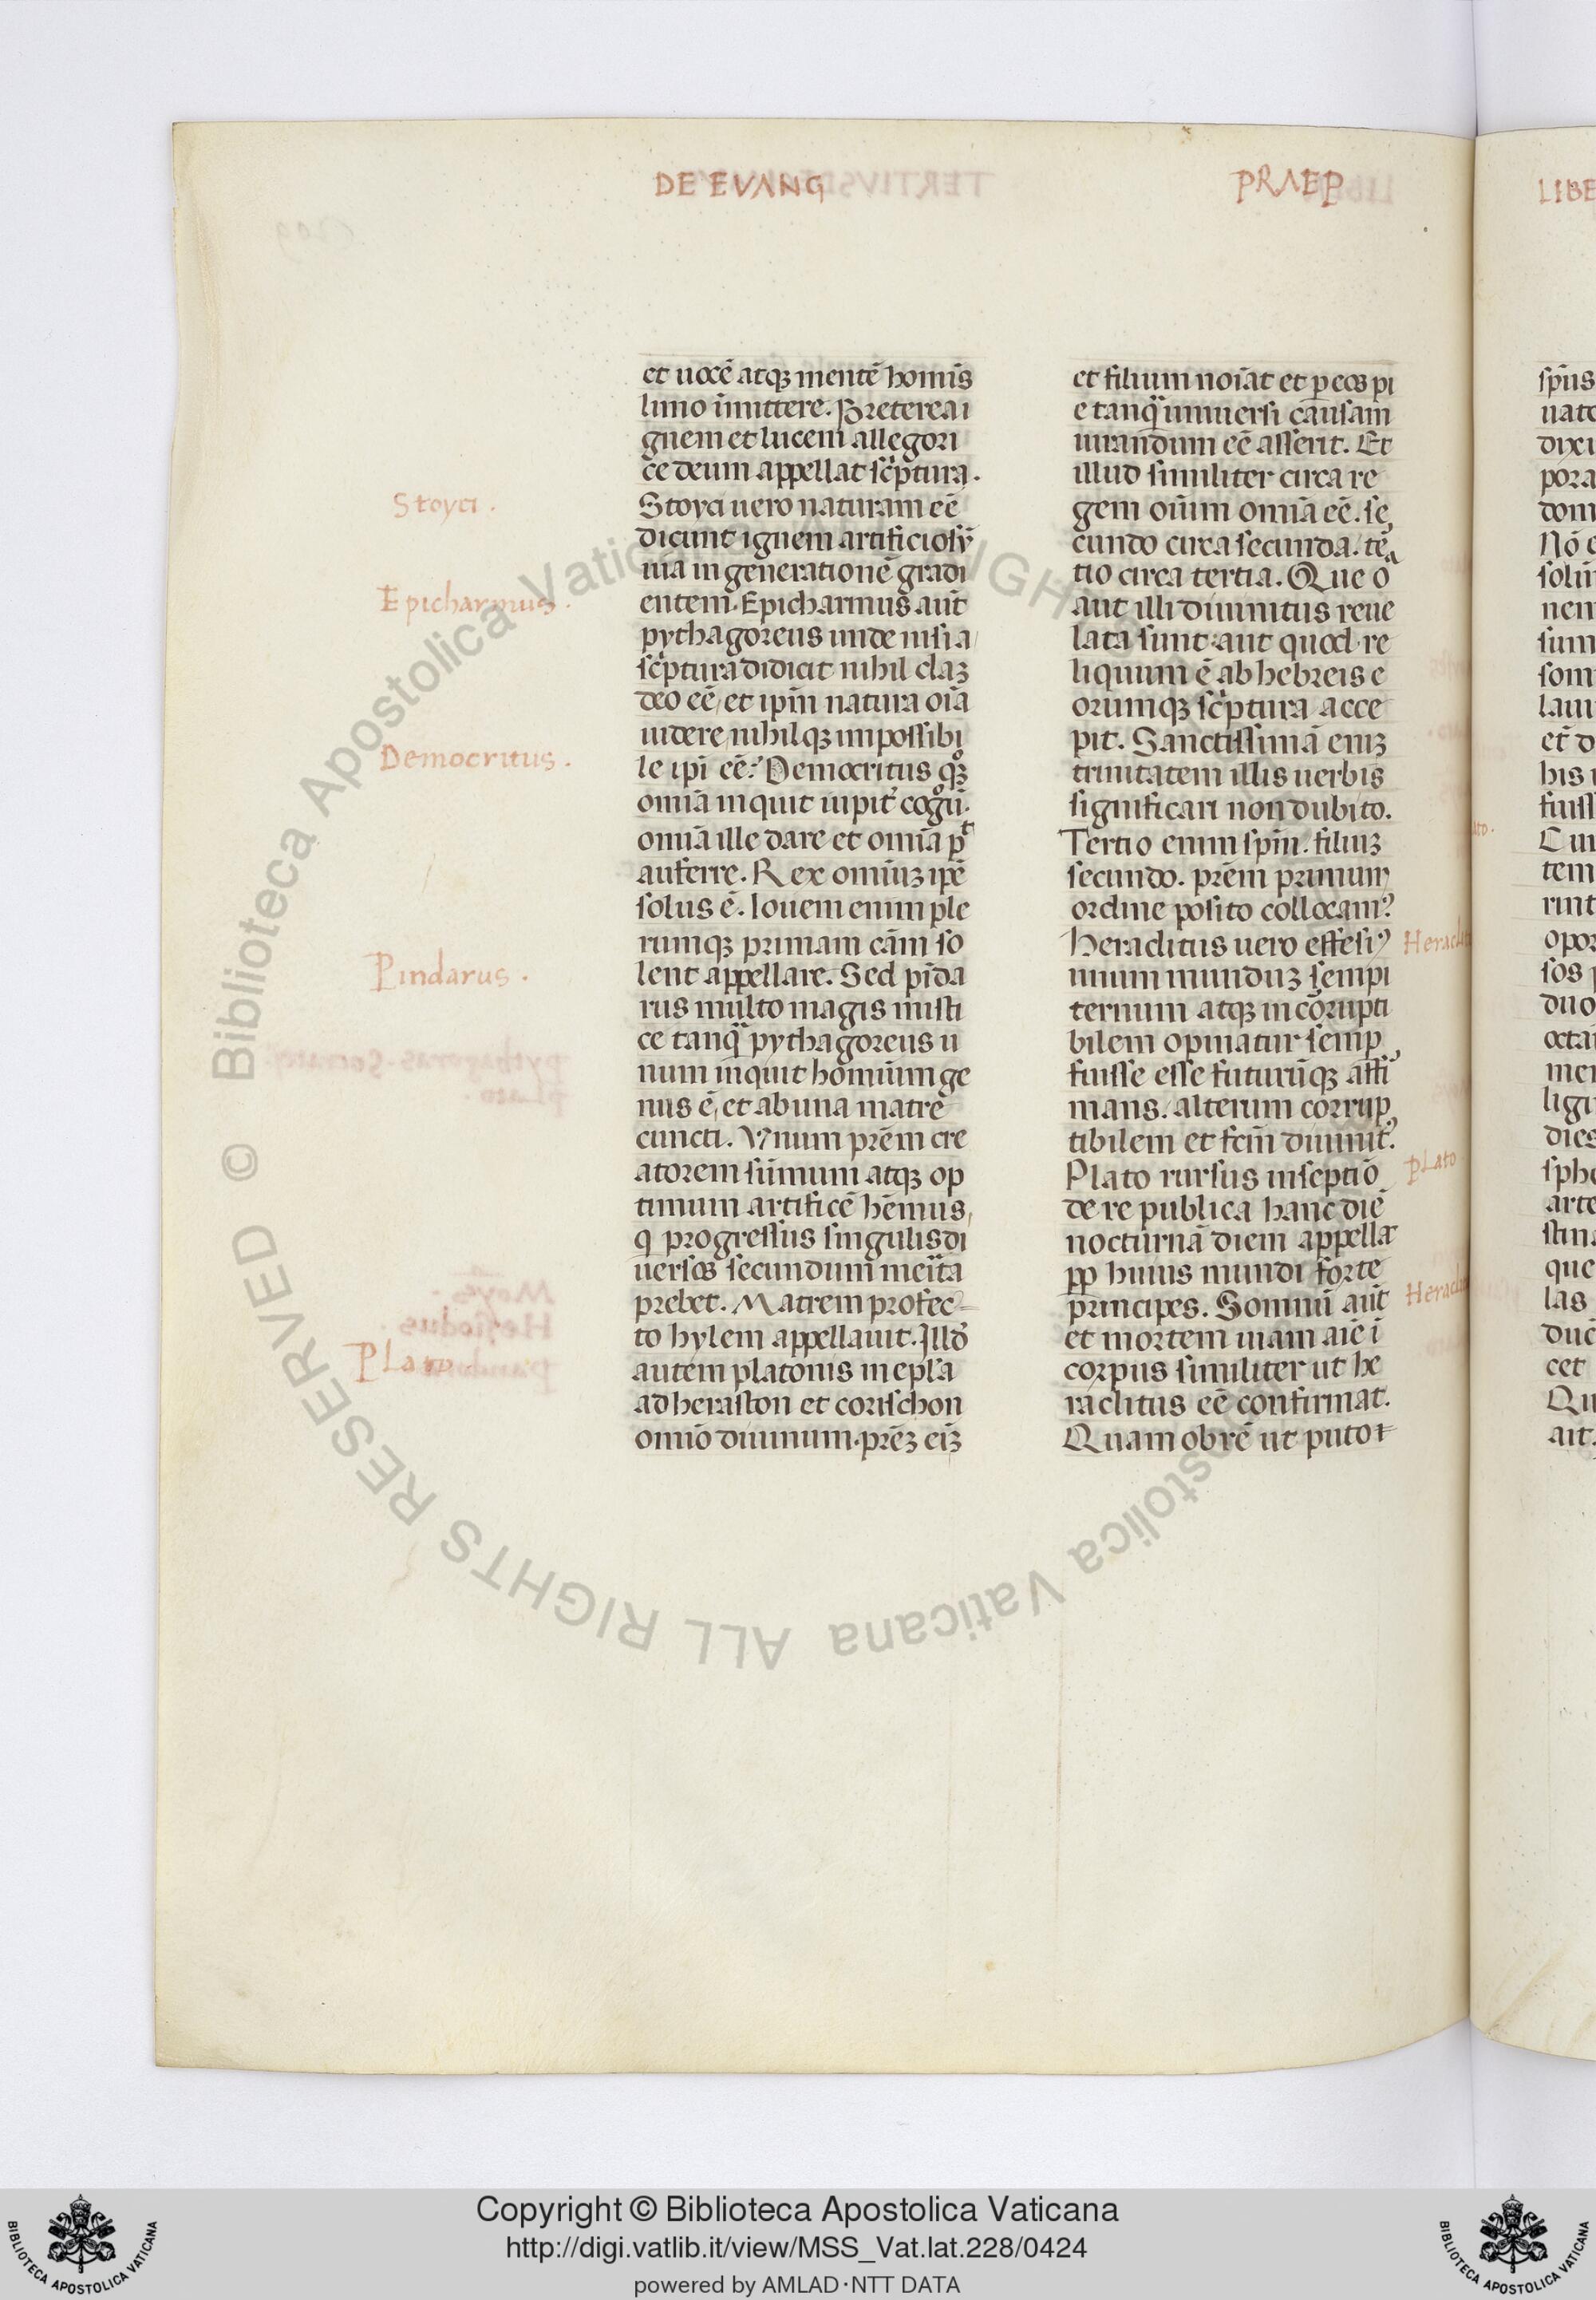 DE EVANG
PRAEP
et uocē atqꝫ mentē homīs
limo īmittere. Pretereai
gnem et lucem allegori
ce deum appellat scͥptura.
Stoyci uero naturam eē
dicunt ignem artificiosū
uia in generationē gradi
entem. Epicharmus aut̄
pythagoreus unde nisi a
scͥptura didicit nihil claꝫ
deo eē, et ipm̄ natura oīa
uidere, nihilqꝫ impossibi
le ipi̅ eē? Democritus qͦqꝫ
omīa inquit iupit̾
omīa ille dare et omīa
auferre. Rex omiūꝫ ipē
solus ē. Iouem enim ple
rumqꝫ primam cām so
lent appellare. Sed pīda
rus multo magis misti
ce tanqͣ pythagoreus u
num inquit homiūm ge
nus ē, et ab una matre
cuncti. Vnum prēm cre
atorem sūmum atqꝫ op
timum artificē hēmus,
q progressus singulis di
uersos secundum meīta
prebet. Matrem profec-
to hylem appellauit. Illd̄
autem platonis in epl̄a
ad heraston et corischon
omīo diuinum. prēꝫ eiꝫ
et filium noīat et ꝑ eos pi
e tanqͣ uniuersi causam
iurandum eē asserit. Et
illud similiter circa re
gem oīum omīa eē. se
cundo circa secunda. te
tio circa tertia. Que
aut illi diuinitus reue
lata sunt: aut quod re
liquum ē ab hebreis e
orumqꝫ scͥptura acce
pit. Sanctissimā eniꝫ
trinitatem illis uerbis
significari non dubito.
Tertio enim spm̄. filiuꝫ
secundo. prēm primum
ordine posito collocamꝰ
Heraclitus uero effesiꝰ
unum munduꝫ sempi
ternum atqꝫ incōrupti
bilem opinatur semꝑ
fuisse esse futurūqꝫ affi
mans. alterum corrup
tibilem et fcm̄ diuinit̾.
Plato rursus in septīo
de re publica hanc diē
nocturnā diem appella
pp huius mundi forte
principes. Somnū aut̄
et mortem uiam aīe ī
corpus similiter ut he
raclitus eē confirmat.
Quam obrē ut puto t
Stoyci.
Epicharmus.
Democritus.
Pindarus.
Plato
Plato
© Biblioteca Apostolica Vaticana ALL RIGHTS RESERVED
Copyright © Biblioteca Apostolica Vaticana
http://digi.vatlib.it/view/MSS_Vat.lat.228/0424
powered by AMLAD·NTT DATA
BIBLIOTECA APOSTOLICA VATICANA
BIBLIOTECA APOSTOLICA VATICANA